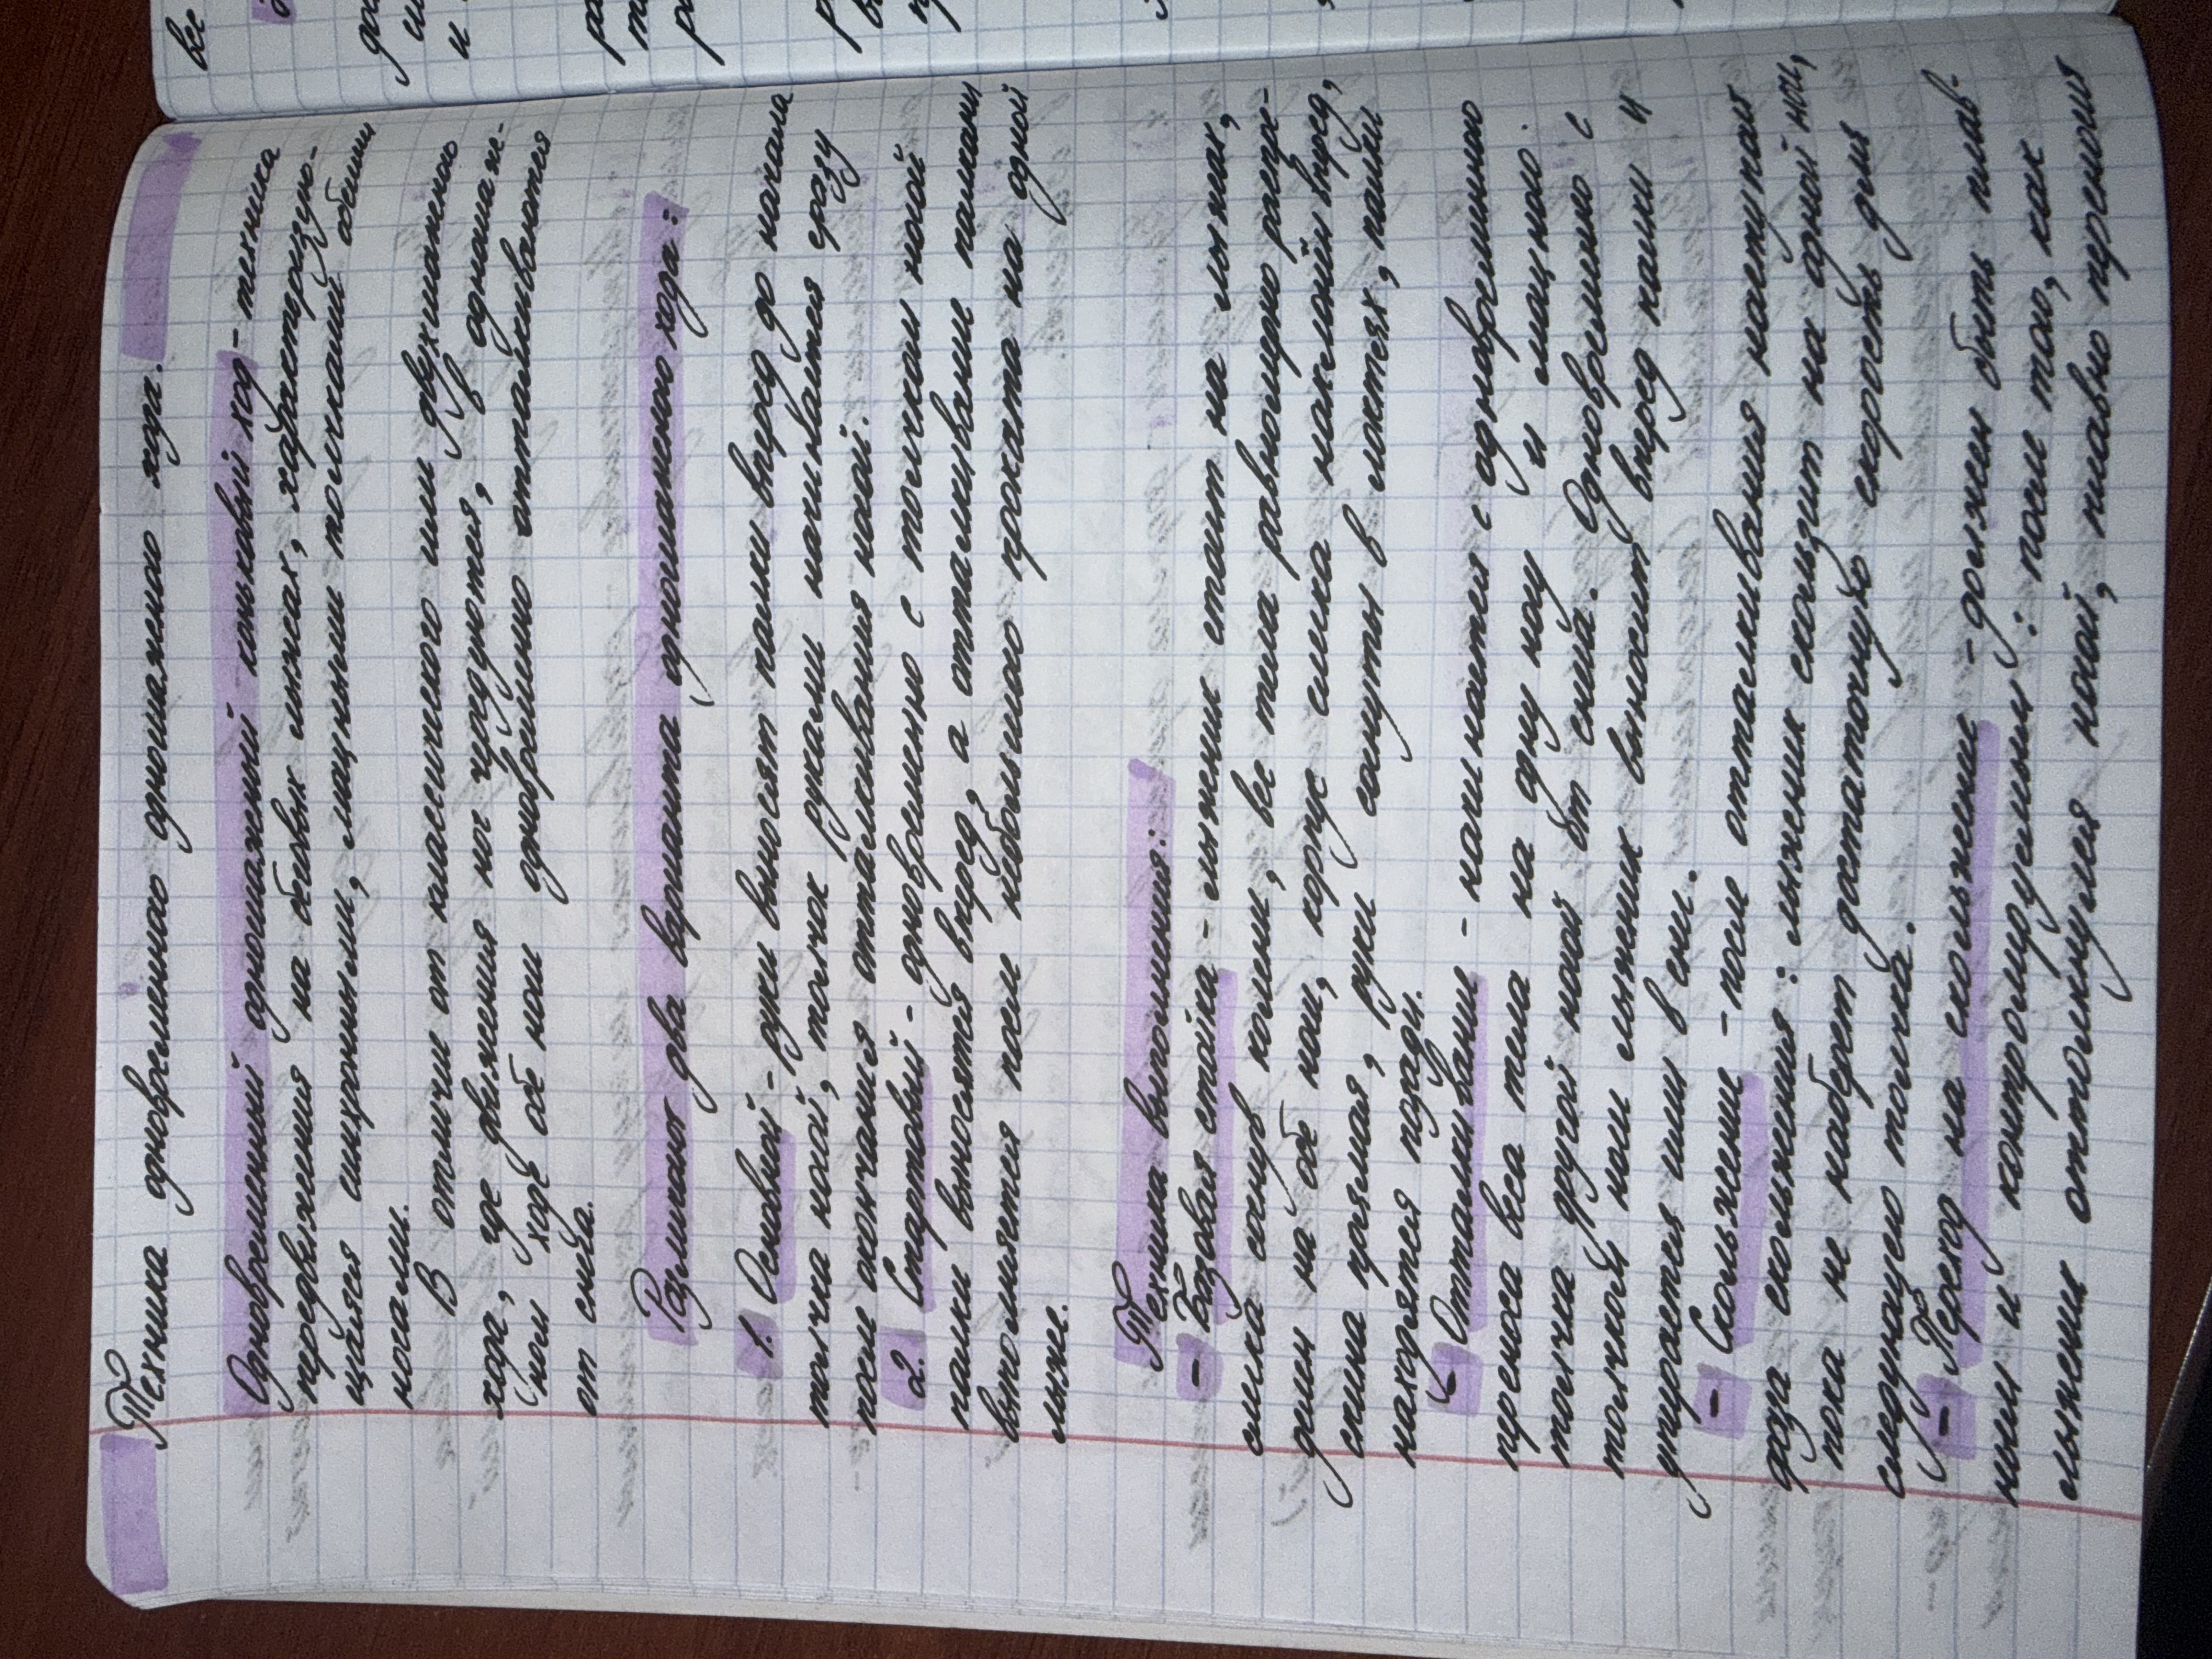 Техника одновременного одношажного хода.
Одновременный одношажный коньковый ход - техника
передвижения на беговых лыжах, характеризую-
щаяся синхронными, мощными толчками обеими
ногами.
В отличие от классического или двухшажного
хода, где движения ног чередуются, в одношаж-
ном ходе обе ноги одновременно отталкиваются
от снега.
Различают два варианта одношажного хода:
1. Основной - руки выносят палки вперед до начала
толчка ногой, толчок руками начинается сразу
после окончания отталкивания ногой.
2. Стартовый - одновременно с толчком ногой
палки выносятся вперед, а отталкивание палками
выполняется после небольшого проката на одной
лыже.
Техника выполнения:
- Базовая стойка - лыжник стоит на лыжах,
слегка согнув колени, вес тела равномерно распре-
делен на обе ноги, корпус слегка наклонён вперед,
спина прямая, руки согнуты в локтях, палки
находятся позади.
- Отталкивание - начинается с одновременного
переноса веса тела на одну ногу и мощного
толчка другой ногой от снега. Одновременно с
толчком ноги лыжник выносит вперед палки и
упирается ими в снег.
- Скольжение - после отталкивания наступает
фаза скольжения: лыжник скользит на одной ноге,
пока не наберет достаточную скорость для
следующего толчка.
- Переход на скольжение - должен быть плав-
ным и контролируемым: после того, как
лыжник оттолкнулся ногой, плавно переносит